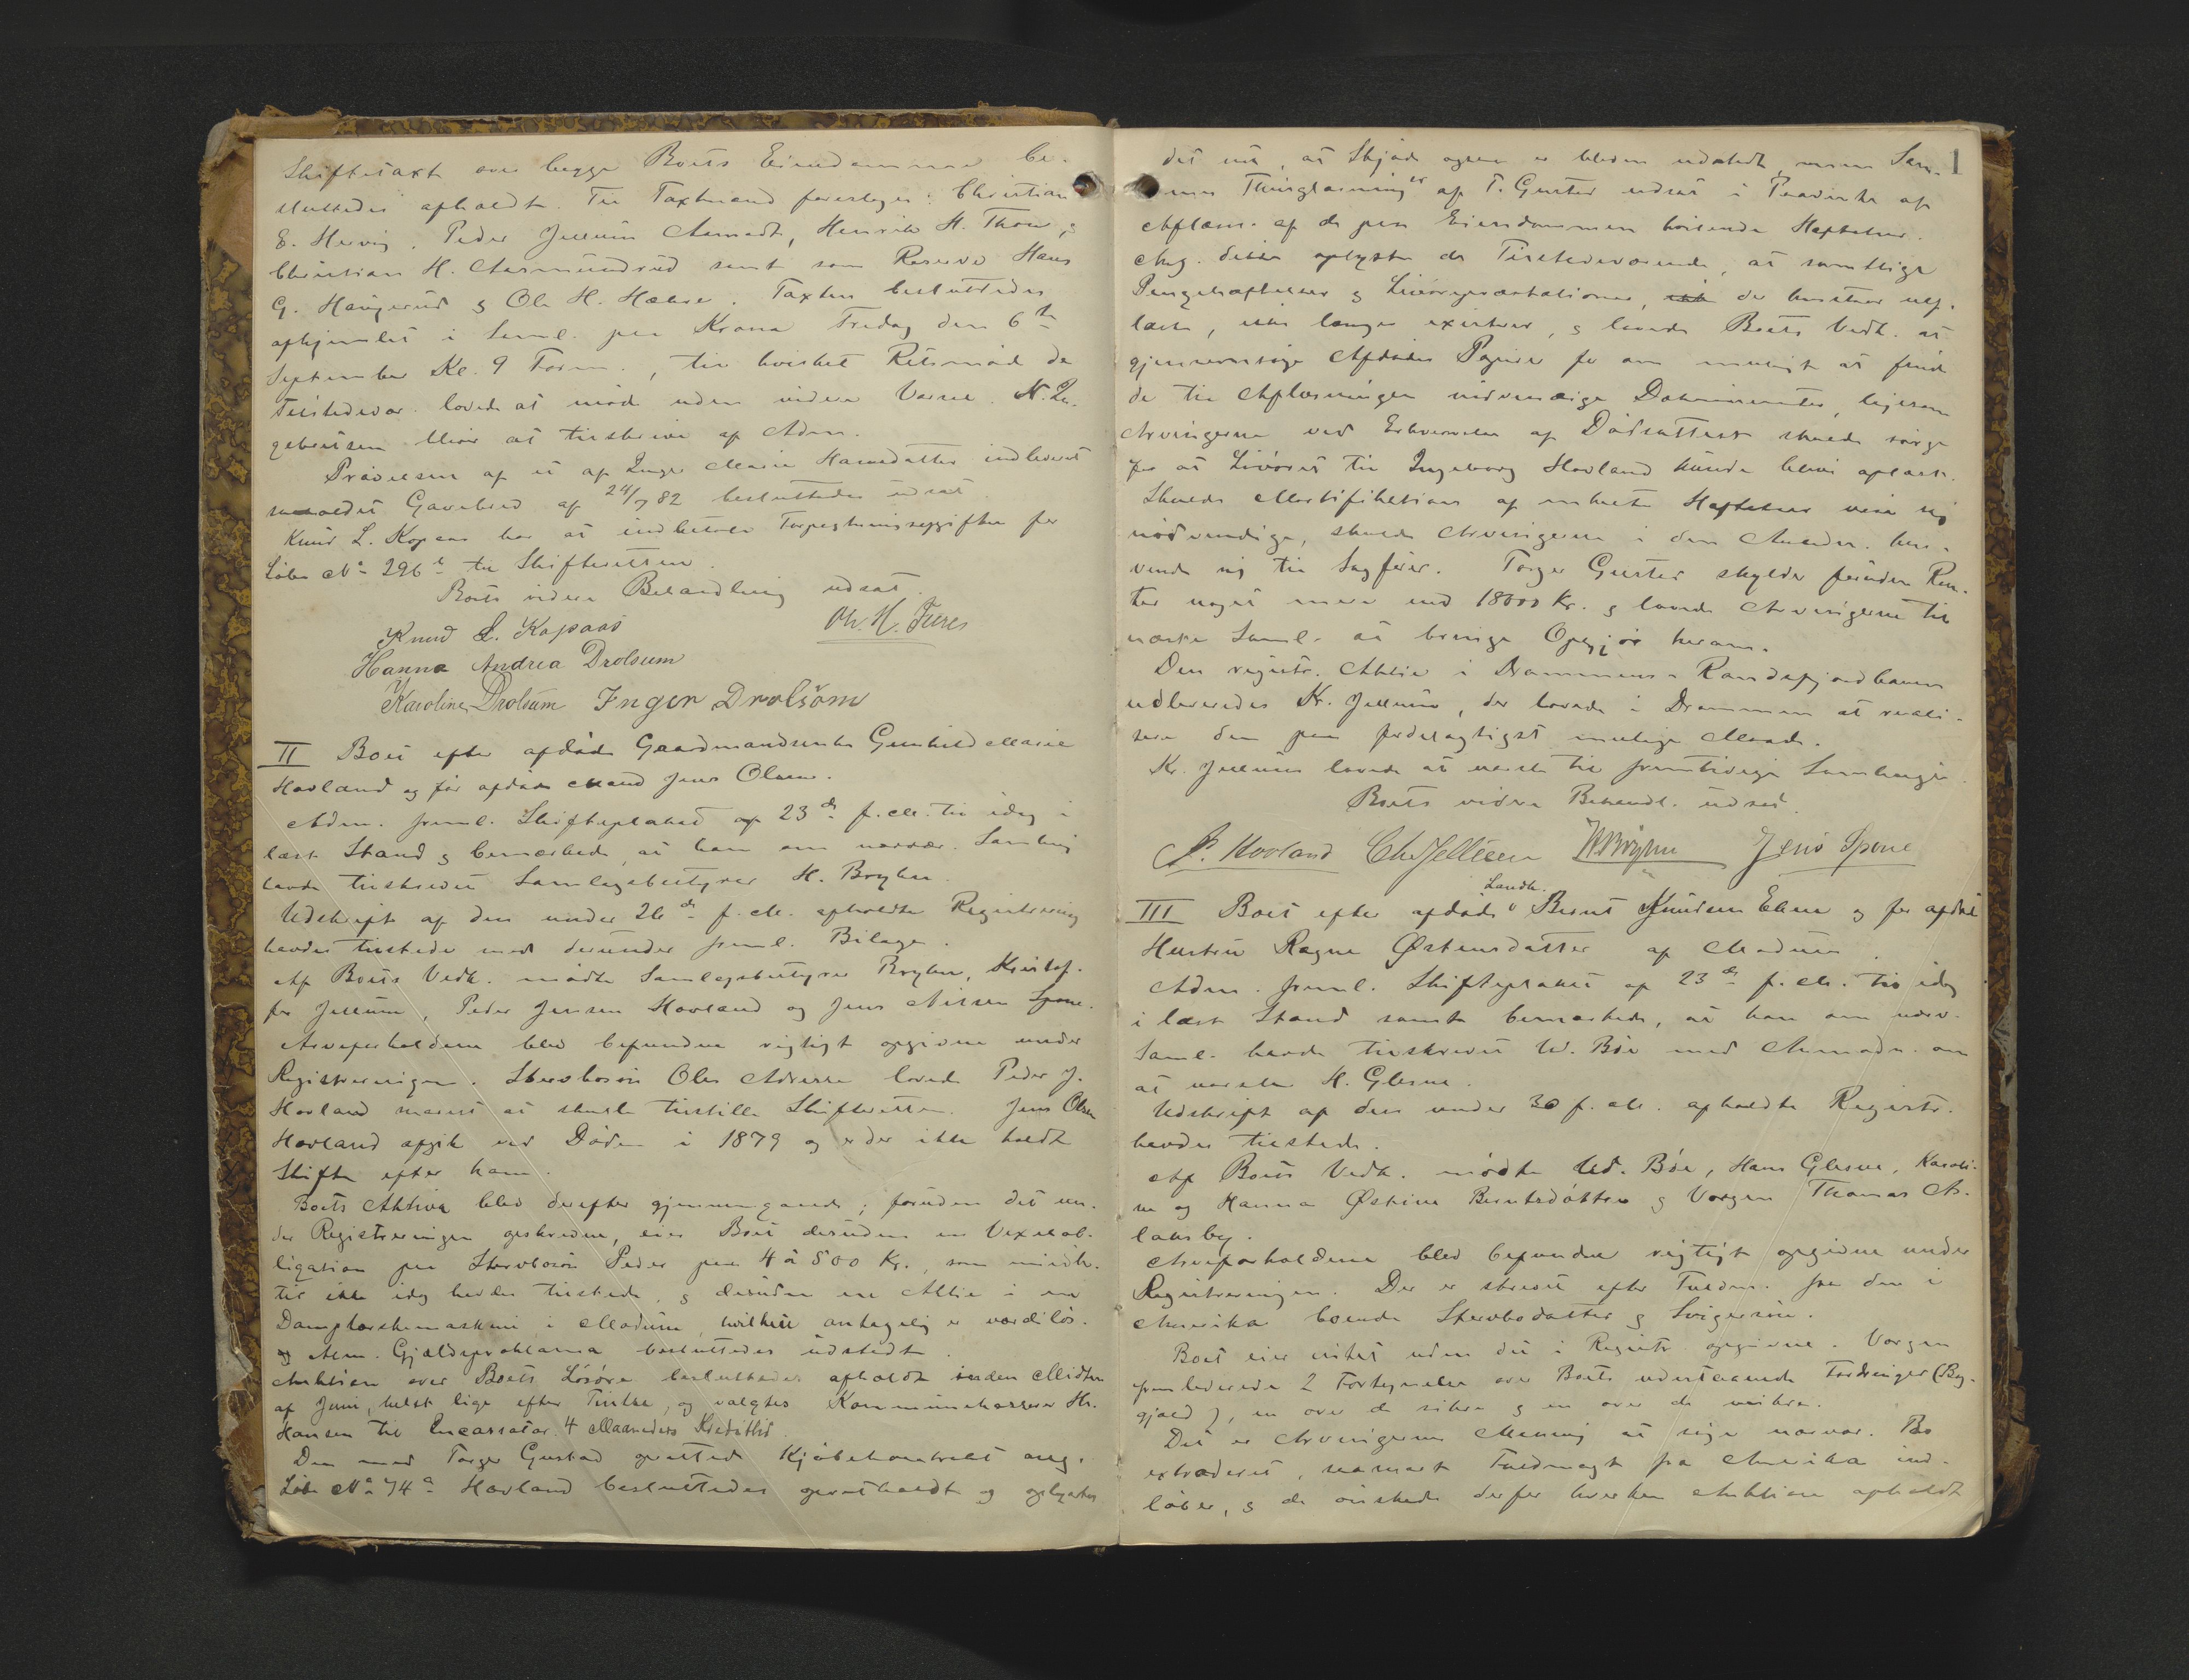 Skiftetaxt over begge Boets Eiendomme be-
sluttedes afholdt. Til Taxtmænd foresloges: Christian
E. Hervig, Peder Jellum Aamodt, Henrik H. Thon,
Christian H. Aasmundrud samt som Reserve Hans
G. Haugerud & Ole H. Hæhre. Taxten besluttedes
afhjemlet i Saml. paa Krona Fredag den 6te
September Kl. 9 Form., til hvilket Retsmøde de
Tilstedevær. lovede at møde uden videre Varsel. N.
bliver at tilskrive af Adm.
Prøvelsen af et af Inger Marie Hansdatter indleveret
Gavebrev af 24/7 82 besluttedes udsat.
Knud L. Kopaas har at indbetale for
Løbe No 296 til Skifteretten.
Boets videre Behandling udsat.
Knud L. Kopaas
Hanna Andrea Drolsum
Karoline Drolsum Inger Drolsom
II Boet efter afdøde Gaardmandsenke Gunhild Marie
Hovland og før afdøde Mand Jens Olsen.
Adm. freml. Skifteplakat af 23de f.M. til idag i
læst Stand & bemærkede, at han om nærvær. Samling
havde tilskrevet Samlagsbestyrer H. Bryhn.
Udskrift af den under 26de f.M. afholdte Registrering
havdes tilstede med derunder freml. Bilage.
Af Boets Vedk. mødte Samlagsbestyrer Bryhn, Kristof-
fer Jellum, Peder Jensen Hovland og Jens Nilsen Spone.
Arveforholdene blev befundne rigtigt opgivne under
Registreringen. Stervbosøn Oles Adresse lovede Peder J.
Hovland snarest at skulle tilstille Skifteretten. Jens Olsen
Hovland afgik ved Døden i 1879 og er der ikke holdt
Skifte efter ham.
Boets Aktiva blev derefter gjennemgaaede; foruden det un-
der Registreringen opskrevne, eier Boet desuden en Vexelob-
ligation paa Stervbosøn Peder paa 4 à 500 Kr., som imidler-
tid ikke idag havdes tilstede, & desuden en Aktie i en
Damptærskemaskine i Modum, hvilken antagelig er værdiløs.
Alm. Gjældsproklama besluttedes udstedt.
Auktion over Boets Løsøre besluttedes afholdt inden Midten
af Juni, helst lige efter Pintse, og valgtes Kommunekasserer Hr.
Hansen til Incassator. 4 Maaneders Kredittid.
Den med Torger Gusted oprettede Kjøbekontrakt ang.
Løbe No 74a Hovland besluttedes opretholdt og oplystes
1
det nu, at Skjøde ogsaa er bleven udstedt, men
Thinglæsning er af T. Gusted udsat i Paavente af
Aflæsn. af de paa Eiendommen hvilende Heftelser.
Ang. disse oplyste de Tilstedeværende, at samtlige
Pengeheftelser & Livørespræstationer, der henstaar uaf-
læste, ikke længer existerer, & lovede Boets Vedk. at
gjennemsøge Afdødes Papirer for om muligt at finde
de til Aflæsningen nødvendige Dokumenter, ligesom
Arvingerne ved Erhvervelse af Dødsattest skulde sørge
for at Livøret til Ingeborg Hovland kunde blive aflæst.
Skulde Mortifikation af enkelte Heftelser vise sig
nødvendige, skulde Arvingerne i den Anledn. hen-
vende sig til Sagfører. Torger Gusted skylder foruden Ren-
ter noget mere end 1800 Kr. & lovede Arvingerne til
næste Saml. at bringe Opgjør herom.
Den registr. Aktie i Drammens-Randsfjordbanen
udleveredes Kr. Jellum, der lovede i Drammen at reali-
sere den paa fordelagtigst mulige Maade.
Kr. Jellum lovede at varsle til fremtidige Samlinger.
Boets videre Behandl. udsat.
P. Hovland Chr Jellum H Bryhn Jens Spone
III Boet efter afdøde Landh. Bernt Knudsen og før afdøde
Hustru Ragne Østensdatter af Modum.
Adm. freml. Skifteplakat af 23de f.M. til idag
i læst Stand samt bemærkede, at han om nærv.
Saml. havde tilskrevet W. Bøe med Anmodn. om
at varsle H. Glesne.
Udskrift af den under 30 f.M. afholdte Registr.
havdes tilstede.
Af Boets Vedk. mødte W. Bøe, Hans Glesne, Karoli-
ne og Hanna Østine Berntsdøttre & Vorgen Thomas
Arveforholdene blev befundne rigtigt opgivne under
Registreringen. Der er skrevet efter Fuldm. fra den i
Amerika boende Stervbodatter & Svigersøn.
Boet eier intet uden det i Registr. opgivne. Vorgen
fremleverede 2 Fortegnelser over Boets udestaaende Fordringer (Bog-
gjæld), en over de sikre & en over de usikre.
Det er Arvingernes Mening at søge nærvær. Bo
extraderet, saasnart Fuldmagt fra Amerika ind-
løber, & de ønskede derfor hverken Auktion afholdt